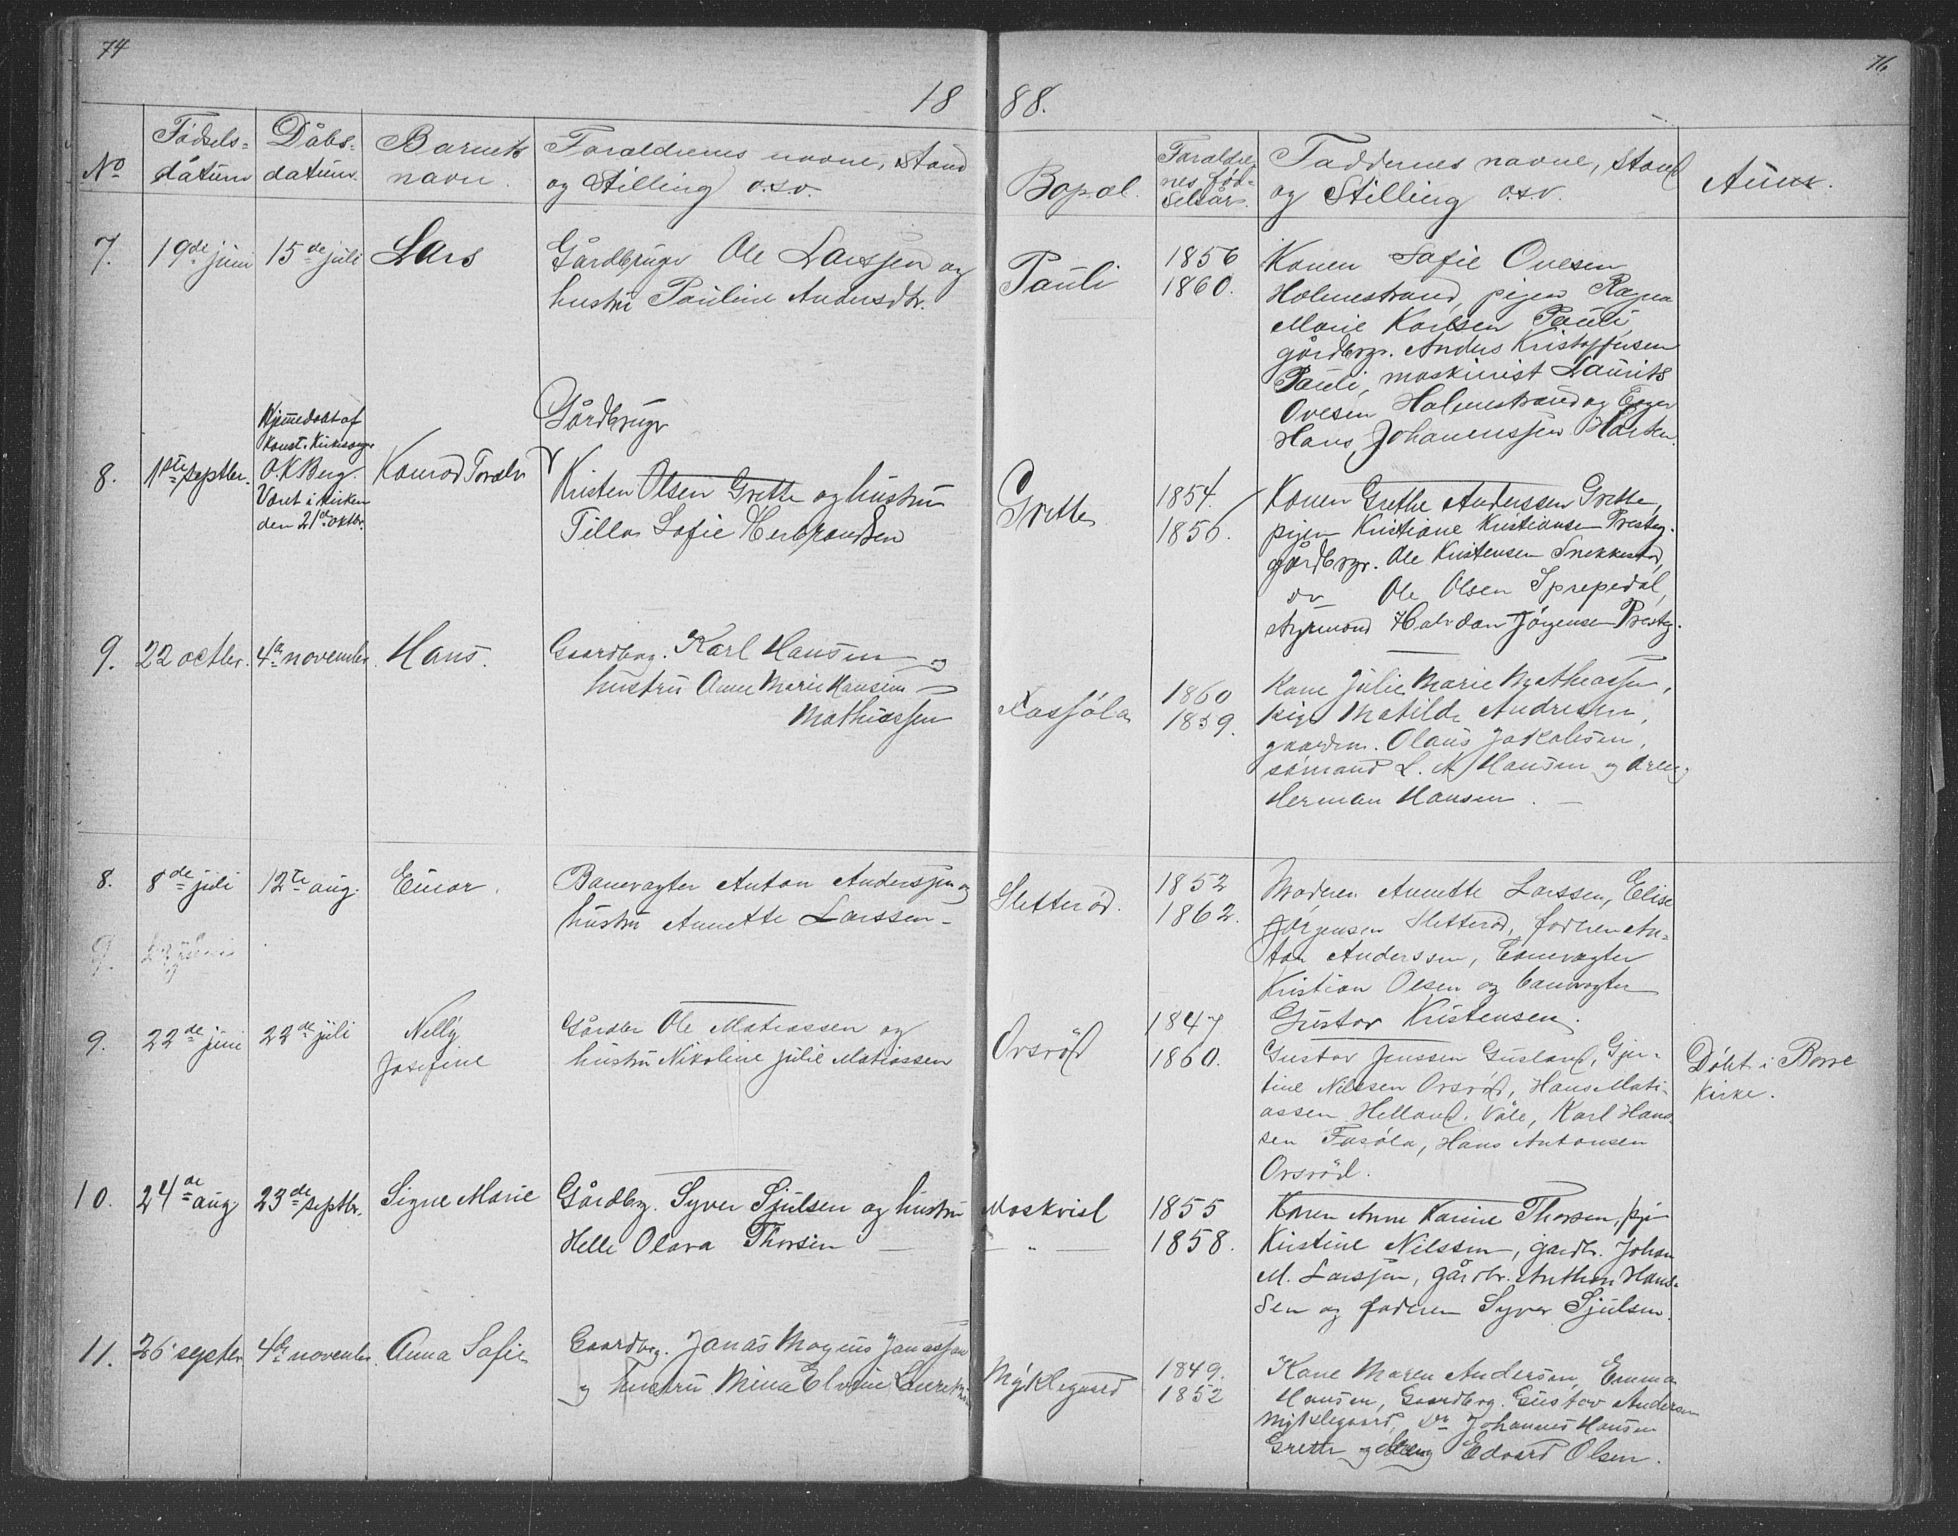 74
76
18 88.
No
Fødsels-
datum
Dåbs-
datum
Barnets
navn
Forældrenes navne, Stand
og Stilling o.s.v.
Bopæl.
Forældre-
nes fød-
selsår.
Faddernes navne, stand
og Stilling o.s.v.
Anm.
7.
19de juni
15de juli
Lars
Gårdbruger Ole Larssen og
hustru Pauline Andersdtr.
Pauli
1856
1860.
Konen Sofie Ovesen
Holmestrand, pigen Ragna
Marie Karlsen Pauli,
gårdbrgr. Anders Kristoffersen
Pauli, maskinist Laurits
Ovesen Holmestrand og
Hans Johannessen
8.
1ste septbr.
Hjemmedøbt af
Konst. Kirkesanger
O.K Berg.
Været i Kirken
den 21de oktbr.
Konrad Toralv
Gårdbruger
Kristen Olsen Grette og hustru
Tilla Sofie Herbrandsen
Grette
1854.
1856.
Konen Grethe Anderssen Grette,
pigen Kristiane Kristiansen Presteg.
gårdbrgr. Ole Kristensen Snekkestad,
do Ole Olsen
styrmand Halvdan Jørgensen Presteg.
9.
22 octbr.
4de november.
Hans.
Gaardbrg. Karl Hansen og
hustru Anne Marie Hansen
Mathiassen
1860
1859.
Kone Julie Marie Mathiassen,
pige Matilde Andresen,
gaardm. Olaus Jakobsen,
sømand L. A Hansen og
Herman Hansen.
8.
8de juli
12te aug.
Einar.
Banevagter Anton Anderssen og
hustru Annette Larssen
Sletterød.
1852
1862.
Moderen Annette Larssen, Elise
Jørgensen Sletterød, faderen An-
ton Anderssen, banevagter
Kristian Olsen og banevagter
Gustav Kristensen.
9.
9.
22de juni
22de juli
Nelly
Josefine
Gårdbr Ole Matiassen og
hustru Nikoline Julie Matiassen
Orsrød
1847
1860.
Gustav Janssen Gusland, Gjer-
tine Nilssen Orsrød, Hans Mati-
assen Helland. Våle, Karl Hans-
sen Fasøla, Hans Antonsen
Orsrød.
Døbt i Borre
Kirke.
10.
24de aug
23de septbr.
Signe Marie
Gårdbrg. Syver Sjulsen og hustru
Helle Olava Thorsen
Moskvisl
"
1855
1858.
Konen Anne Karine Thorsen, pige
Kristine Nilssen, gårdbr. Johan
M. Larssen, gårdbr. Anthon Hans-
sen og faderen Syver Sjulsen.
11.
26 septbr.
4de november.
Anna Sofie
Gaardbrg. Jonas Magnus Jonassen
og hustru Mina Elvine
Myklegaard
1849.
1852
Kone Maren Anderson, Emma
Hansen, Gaardbrg. Gustav Andersen
Myklegaard, Do Johannes Hansen
Grette og Edvard Olsen.